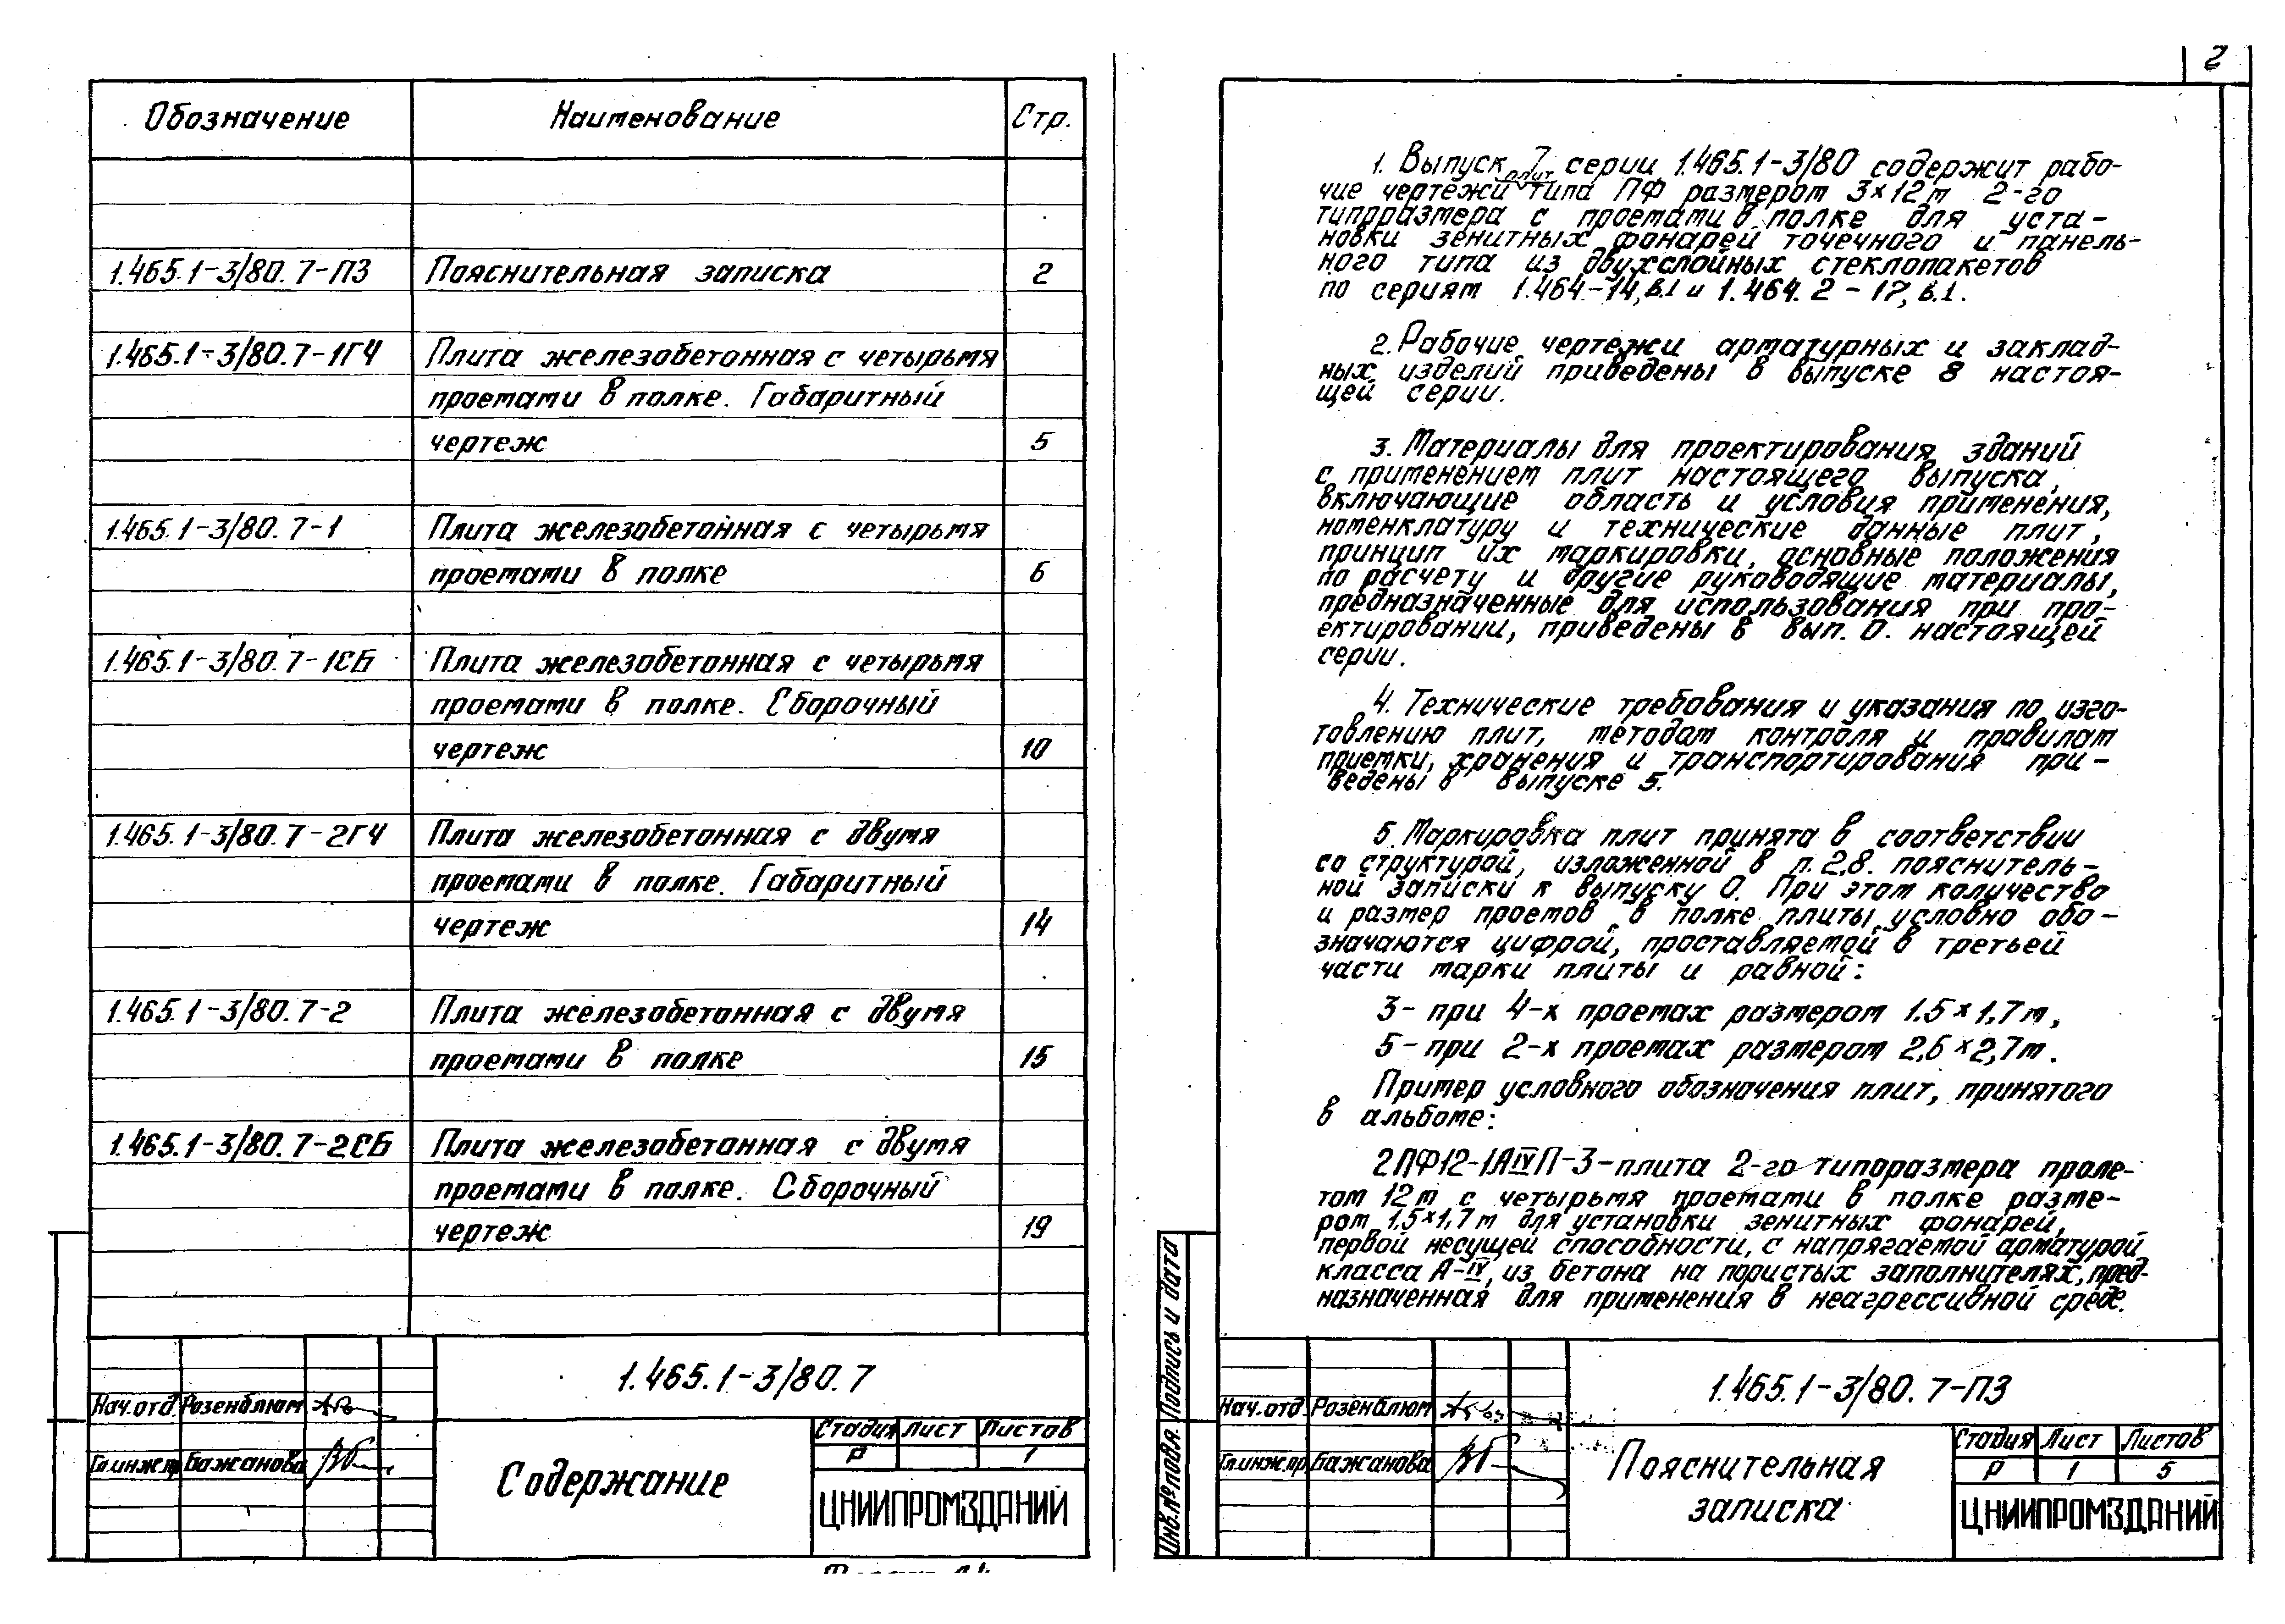 Обозначение Наименование Стр.
1.465.1-3/80.7-ПЗ Пояснительная записка 2
1.465.1-3/80.7-1ГЧ Плита железобетонная с четырьмя
проемами в полке. Габаритный
чертеж 5
1.465.1-3/80.7-1 Плита железобетонная с четырьмя
проемами в полке 6
1.465.1-3/80.7-1СБ Плита железобетонная с четырьмя
проемами в полке. Сборочный
чертеж 10
1.465.1-3/80.7-2ГЧ Плита железобетонная с двумя
проемами в полке. Габаритный
чертеж 14
1.465.1-3/80.7-2 Плита железобетонная с двумя
проемами в полке 15
1.465.1-3/80.7-2СБ Плита железобетонная с двумя
проемами в полке. Сборочный
чертеж 19
1.465.1-3/80.7
Нач.отд. Розенблюм
Гл.инж.пр. Бажанова
Содержание
Стадия Лист Листов
Р 1
ЦНИИПРОМЗДАНИЙ
2
1. Выпуск 7 серии 1.465.1-3/80 содержит рабо-
чие чертежи плит типа ПФ размером 3×12м 2-го
типоразмера с проемами в полке для уста-
новки зенитных фонарей точечного и панель-
ного типа из двухслойных стеклопакетов
по сериям 1.464-14, в.1 и 1.464.2-17, в.1.
2. Рабочие чертежи арматурных и заклад-
ных изделий приведены в выпуске 8 настоя-
щей серии.
3. Материалы для проектирования зданий
с применением плит настоящего выпуска,
включающие область и условия применения,
номенклатуру и технические данные плит,
принцип их маркировки, основные положения
по расчету и другие руководящие материалы,
предназначенные для использования при про-
ектировании, приведены в вып. 0. настоящей
серии.
4. Технические требования и указания по изго-
товлению плит, методам контроля и правилам
приемки, хранения и транспортирования при-
ведены в выпуске 5.
5. Маркировка плит принята в соответствии
со структурой, изложенной в п. 2.8. пояснитель-
ной записки к выпуску 0. При этом количество
и размер проемов в полке плиты условно обо-
значаются цифрой, проставляемой в третьей
части марки плиты и равной:
3- при 4-х проемах размером 1.5×1,7м,
5- при 2-х проемах размером 2,6×2,7м.
Пример условного обозначения плит, принятого
в альбоме:
2ПФ12-1АIVП-3-плита 2-го типоразмера проле-
том 12м с четырьмя проемами в полке разме-
ром 1,5×1,7м для установки зенитных фонарей,
первой несущей способности, с напрягаемой арматурой
класса А-IV, из бетона на пористых заполнителях, пред-
назначенная для применения в неагрессивной среде.
1.465.1-3/80.7-ПЗ
Нач.отд. Розенблюм
Гл.инж.пр. Бажанова
Пояснительная
записка
Стадия Лист Листов
Р 1 5
ЦНИИПРОМЗДАНИЙ
Подпись и дата
Инв.№ подл.